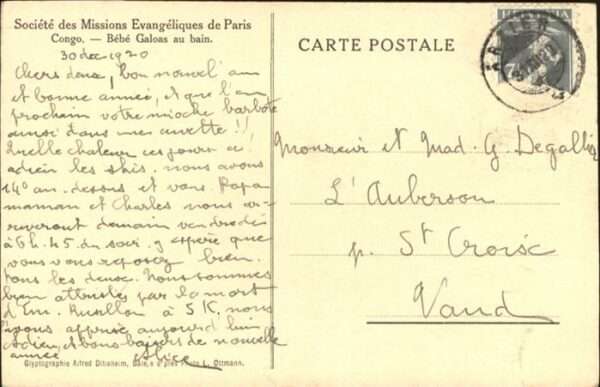 Société des Missions Evangéliques de Paris
Congo. — Bébé Galoas au bain.
CARTE POSTALE
HELVETIA
30 dec 1920
Chers deux, bon nouvel an
et bonne année, et que l'an
prochain votre mioche barbote
aussi dans une cuvette !!
Quelle chaleur ces jours ci
adieu les skis. nous avons
14° au dessus et vous. Papa
maman et Charles nous ar-
riveront demain vendredi
à 6h.45 du soir. J'espère que
vous vous reposez bien
tous les deux. Nous sommes
bien attristés par la mort
à S K. nous
l'avons appris aujourd'hui
Adieu, et bons baisers de nouvelle
année Alice
Monsieur et Mad. G. Degallier
L'Auberson
p. St Croix
Vaud
Glyptographie Alfred Ditisheim, Bâle, d'après Photo L. Ottmann.